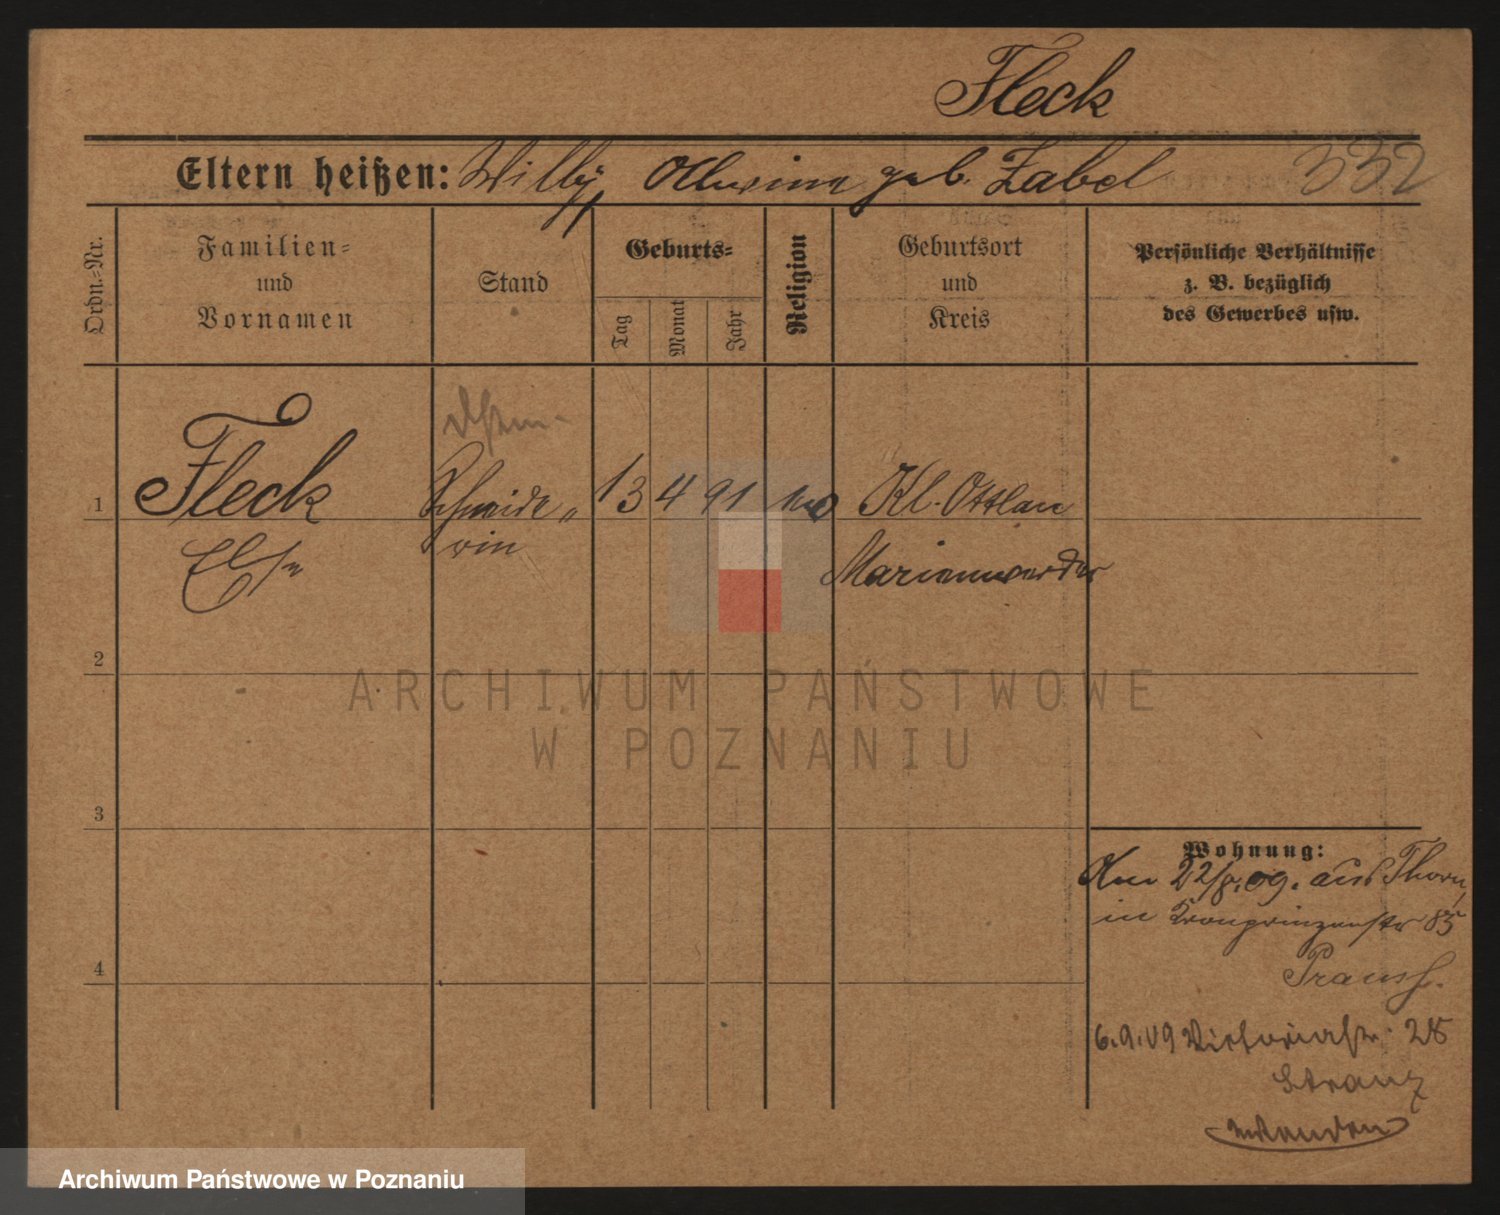 Fleck
Eltern heißen: Willy, Ottwina geb. Zabel 332
Ordn.=Nr.
Familien=
und
Vornamen
Stand
Geburts=
Tag
Monat
Jahr
Religion
Geburtsort
und
Kreis
Persönliche Verhältnisse
z. B. bezüglich
des Gewerbes usw.
1 Fleck Schneide„ 13 4 91 Kl. Ottlau
Else rin Marienwerder
2
3
4
Wohnung:
Am 22/8.09. aus Thorn,
in Kronprinzenstr 85
6.9.09 Victoriastr. 25
Stranz
ARCHIWUM PAŃSTWOWE
W POZNANIU
Archiwum Państwowe w Poznaniu